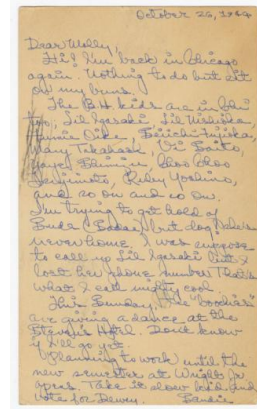 October 26, 1944
Dear Molly,
Hi! I'm back in Chicago
again. Nothing to do but sit
on my buns.
The B.H. kids are in Chi
too, Lil Igasaki, Lil Nishioka,
Oike, Seiichi Fujioka,
Mary Takahashi, Vi Saito,
Choo Choo
Fujimoto, Riley Yoshino,
and so on and so on.
I'm trying to get hold of
Buda but dog he's
never home. I was suppose
to call up Lil Igasaki but I
lost her phone number. That's
what I call mighty cool.
This Sunday, the "boochies"
are giving a dance at the
Stevens Hotel. Don't know
if I'll go yet.
Planning to work until the
new semester at Wright Jr
opens. Take it slow kid. And
vote for Dewey.